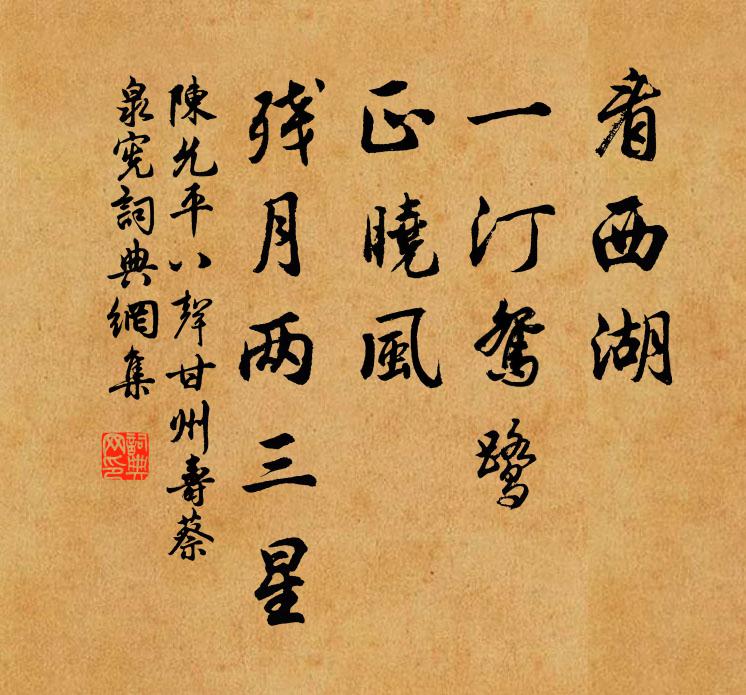 看西湖
一汀鴛鷺
正曉風
残月两三星
陳允平八聲甘州壽蔡
泉憲詞典網集
詞典網印